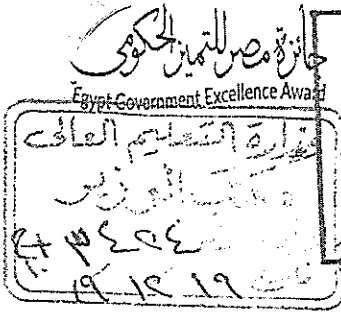 جائزة مصر للتميز الحكومى
Egypt Government Excellence Award
وزارة التعليم العالى
مكتب الوزير
١٩ ١٢ ١٩